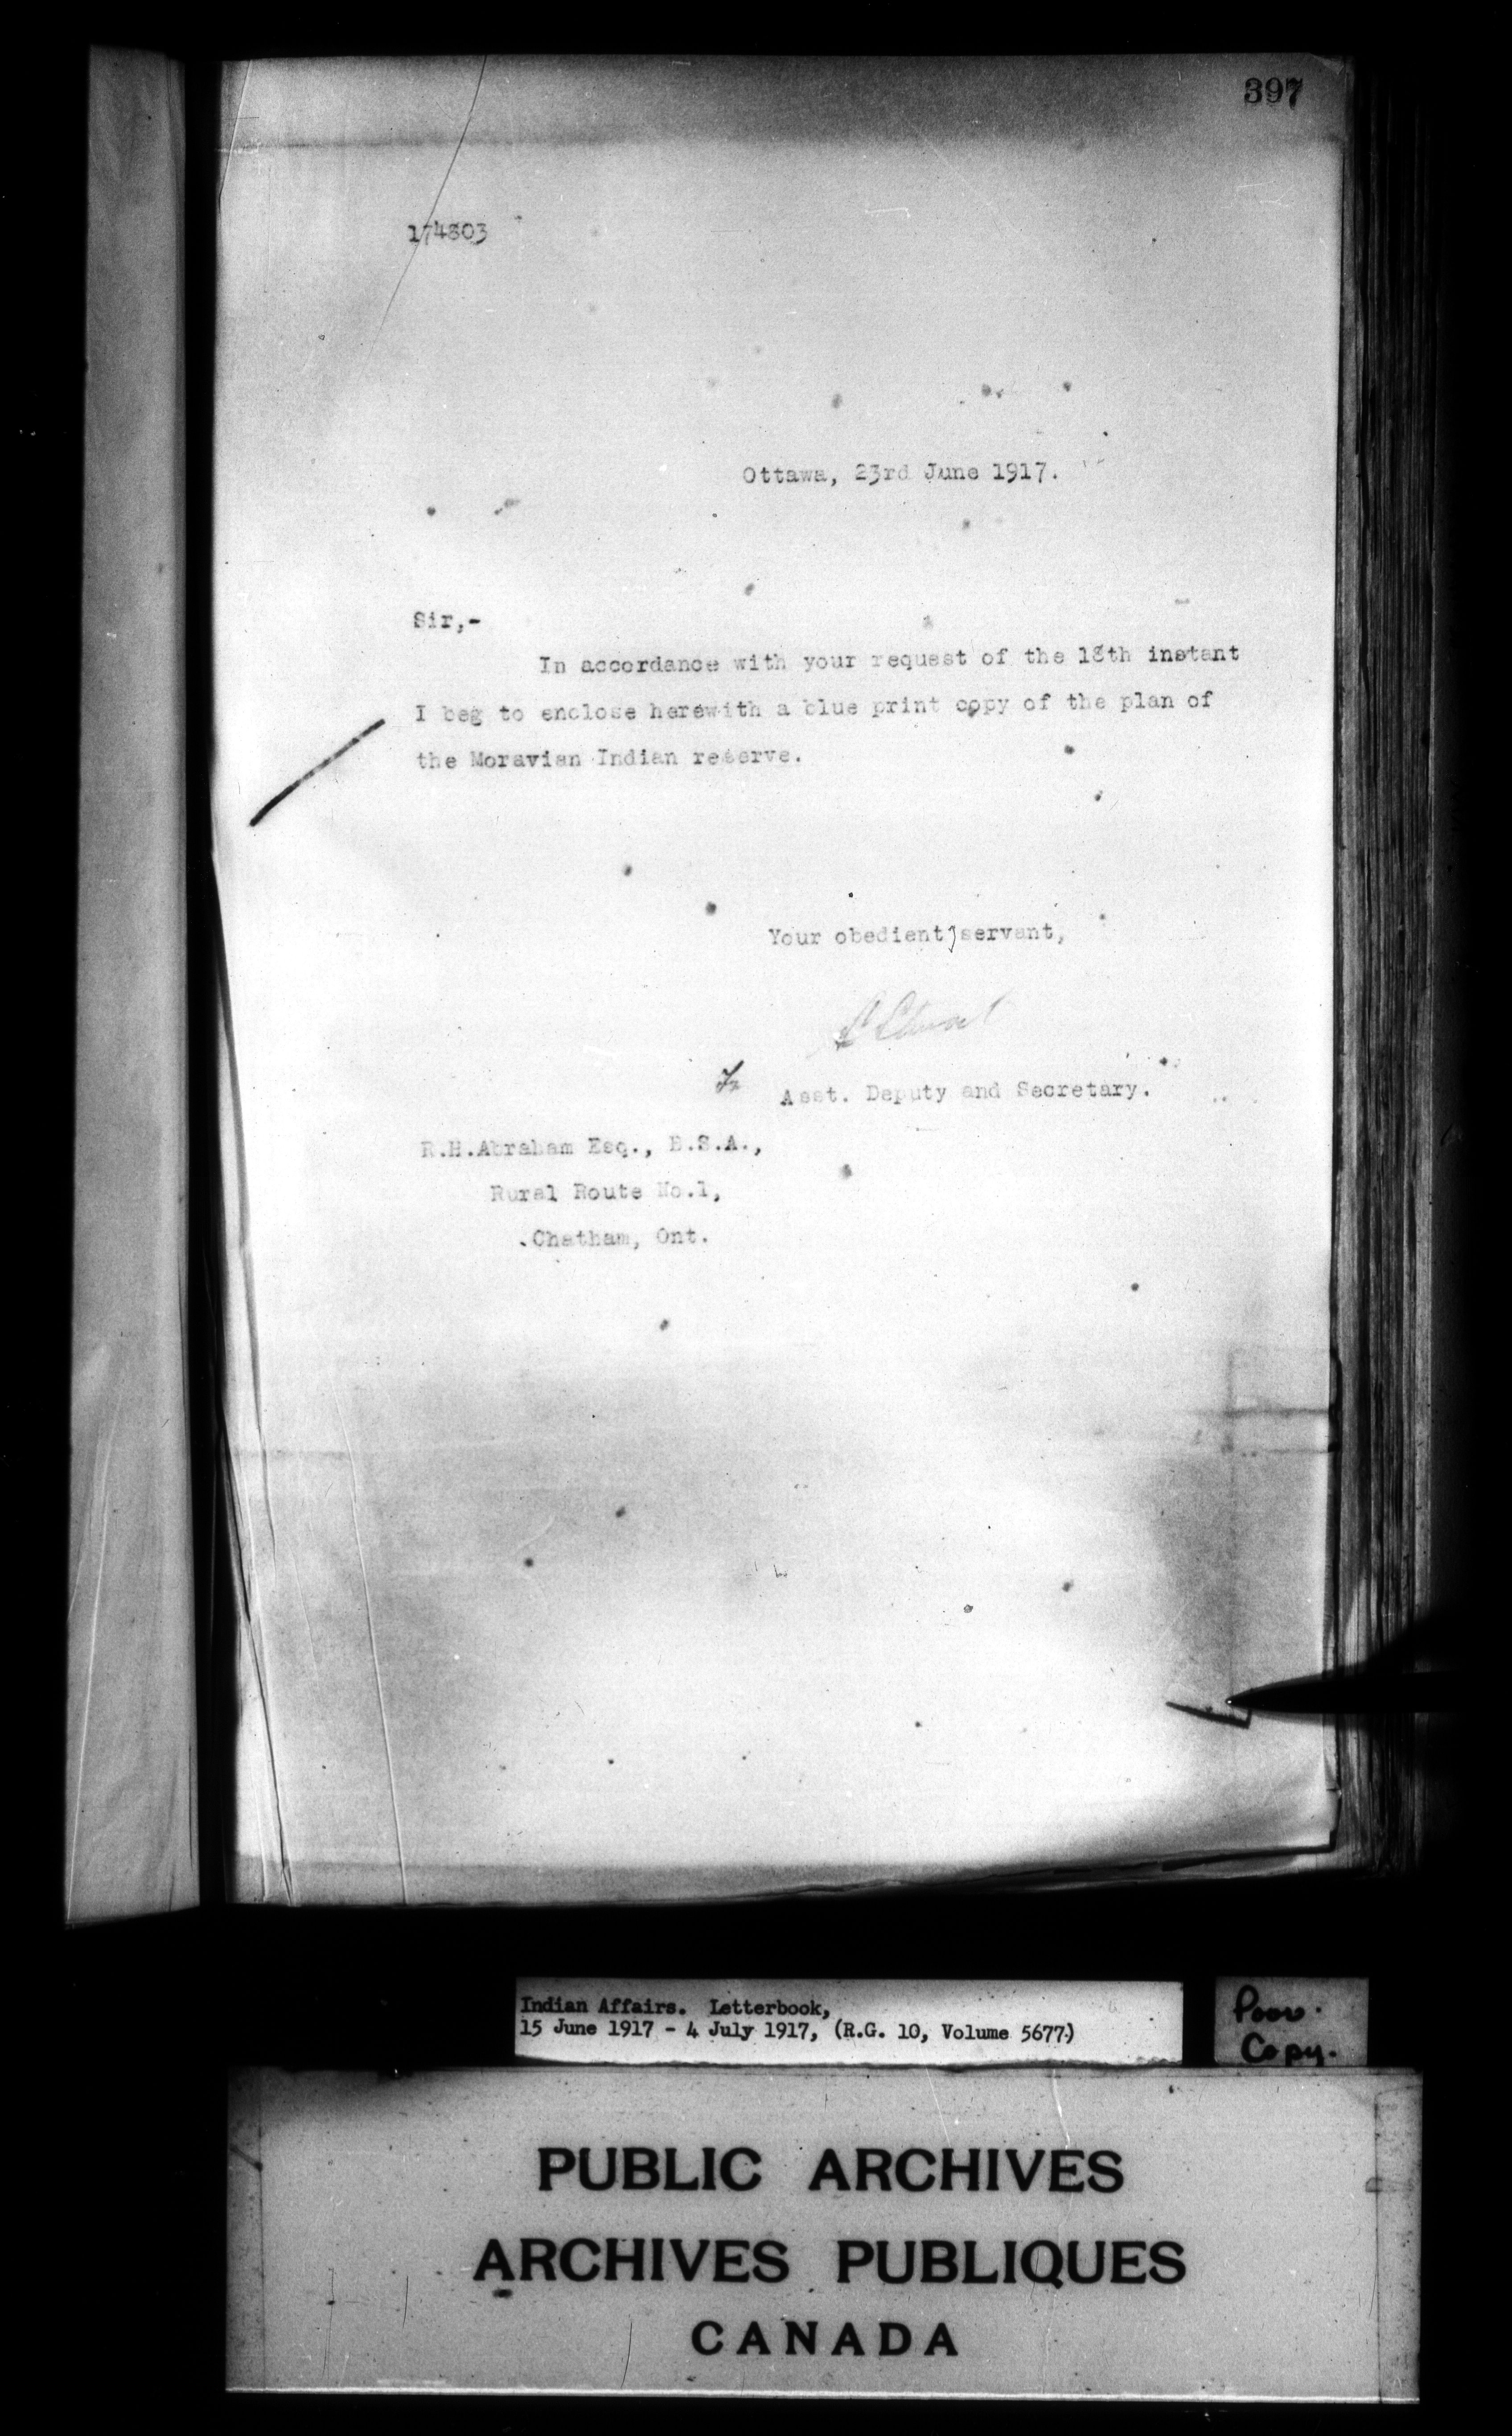 397
174803
Ottawa, 23rd June 1917.
Sir,-
In accordance with your request of the 18th instant
I beg to enclose herewith a blue print copy of the plan of
the Moravian Indian reserve.
Your obedient servant,
Asst. Deputy and Secretary.
R.H.Abraham Esq., B.S.A.,
Rural Route No.1,
Chatham, Ont.
Indian Affairs. Letterbook,
15 June 1917 - 4 July 1917, (R.G. 10, Volume 5677)
Poor
Copy.
PUBLIC ARCHIVES
ARCHIVES PUBLIQUES
CANADA